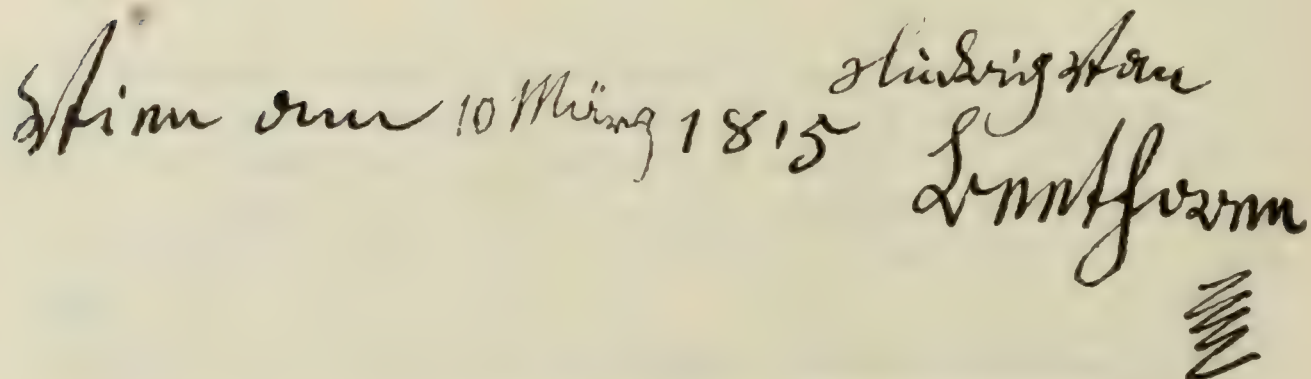 Wien am 10 März 1815
Ludwig van
Beethoven